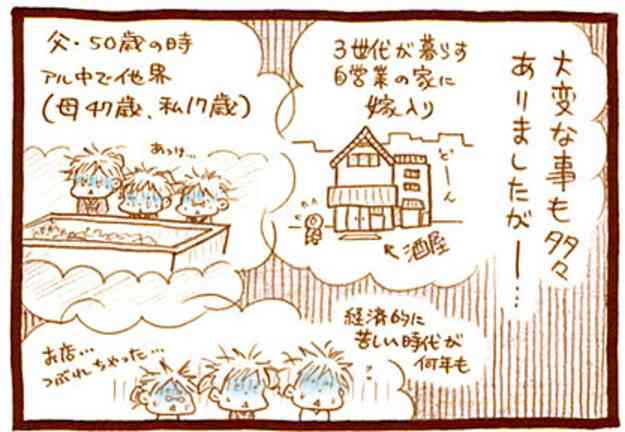 大変な事も多々
ありましたがー…
3世代が暮らす
自営業の家に
嫁入り
どーん
酒屋
父・50歳の時
アル中で他界
(母47歳、私17歳)
あっけ…
経済的に
苦しい時代が
何年も
お店…
つぶれちゃった…